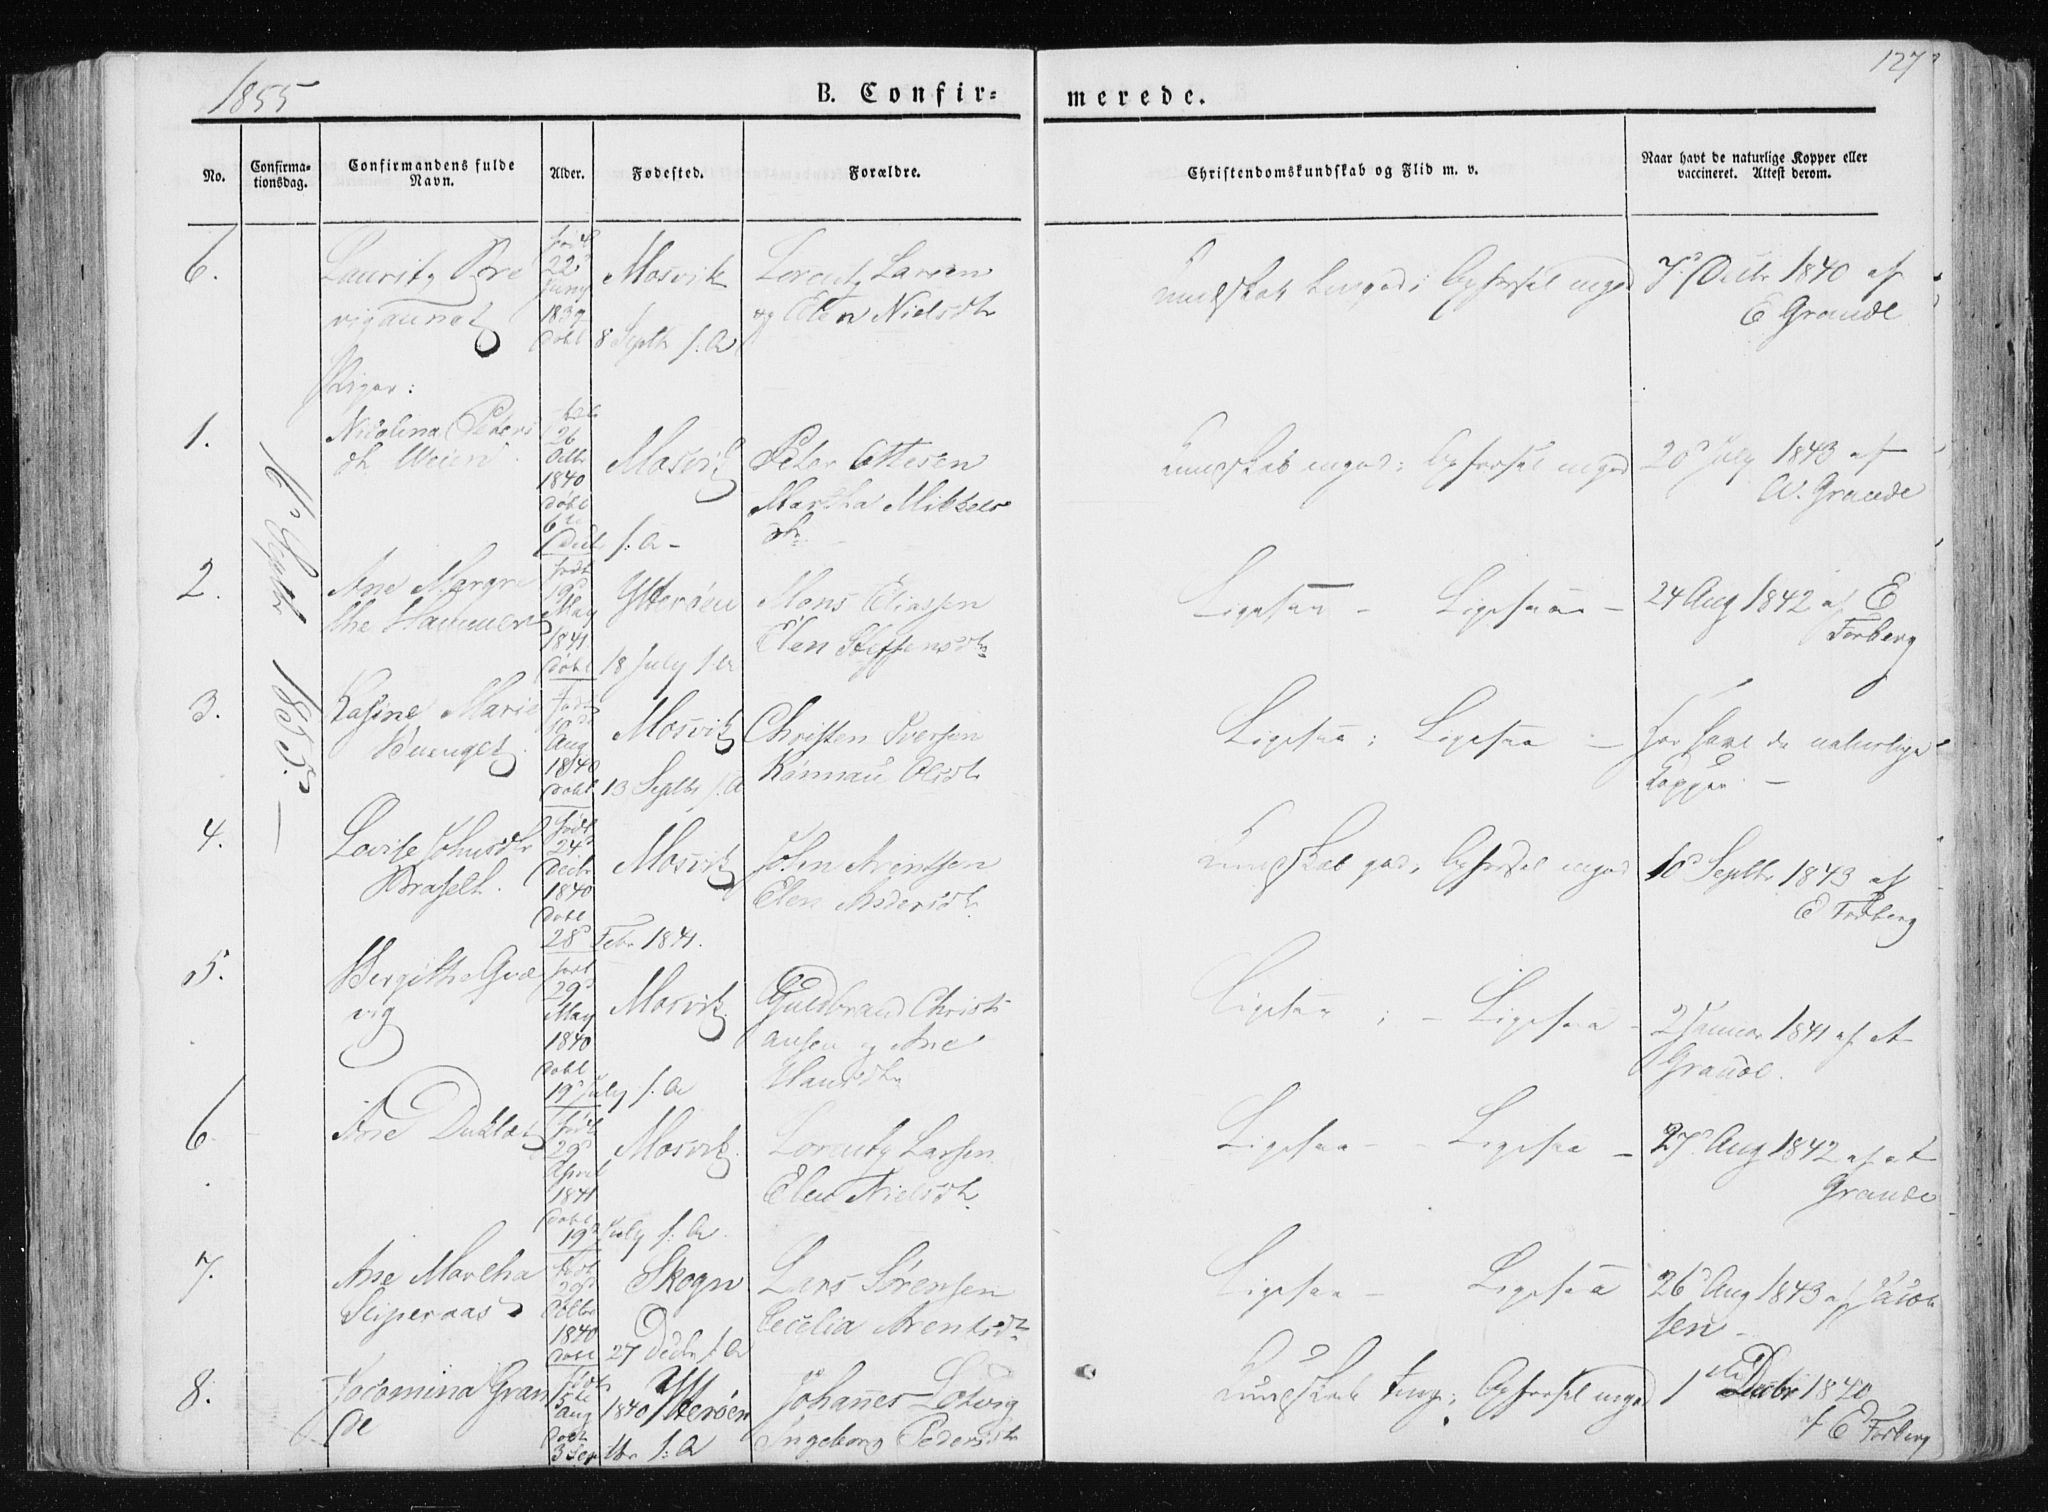 1855
127
B. Confirmerede.
No.
Confirmationsdag.
Confirmandens fulde Navn.
Alder.
Fødested.
Forældre.
Christendomskundskab og Flid m. v.
Naar havt de naturlige Kopper eller vaccineret. Attest derom.
6.
født 22d Juny 1839 døbt 8 Septbr s: A
Mosvik
Lorentz Larsen
og Elen Nielsdtr
Kundskab temgod; Opførsel mgod
7d Decbr 1840 af
E Grande
Piger:
16d Septbr 1855. —
1.
Nicolina Peters
dtr Weien
26 Octbr 1840 døbt 6te Decbr s: A –
Mosvik
Peter Ottesen
Martha Mikkels
dtr.
Kundskab mgod; Opførsel mgod
20d July 1843 af
A. Grande
2.
Ane Margre
the Hammer
født 19d May 1841 døbt 18 July s: A
Ytterøen
Mons Eliassen
Elen Steffensdtr
Ligesaa – Ligesaa –
24 Aug 1842 af E
Forberg
3.
Kasine Marie
Født 10d Aug 1840 døbt 13 Septbr s: A
Mosvik
Christen Iversen
Rønnau Olsdtr
Ligesaa; Ligesaa –
har havt de naturlige
Kopper. –
4.
Lovise Johnsdtr
født 24d Decbr 1840 døbt 28d Febr 1841.
Mosvik
John Arentsen
Elen Andersdtr
Kundskab god; Opførsel mgod
10d Septbr 1843 af
E Forberg
5.
Bergitthe Græ
vig
født 29d May 1840 døbt 19d July s: A
Mosvik.
Guldbrand Christi
ansen og Ane
Hansdtr
Ligesaa; – Ligesaa –
2 Januar 1841 af A
Grande.
6
Ane Duklæt
født 29d April 1841 døbt 19d July s: A
Mosvik.
Lorentz Larsen
Elen Nielsdtr.
Ligesaa – – Ligesaa –
27d Aug 1842 af A
Grande
7.
Ane Martha
født 29d Octbr 1840 døbt 27 Decbr s: A
Skogn
Lars Sørensen
Cecelia Arentsdtr
Ligesaa – Ligesaa
26d Aug 1843 af Jacob
sen –
8.
Jocomina Gran
de
født 15de Aug 1840 døbt 3 Septbr s: A
Ytterøen
Johannes Lotvig
Ingeborg Pedersdtr
Kundskab temg; Opførsel mgod
1ste Decbr 1840
af E Forberg